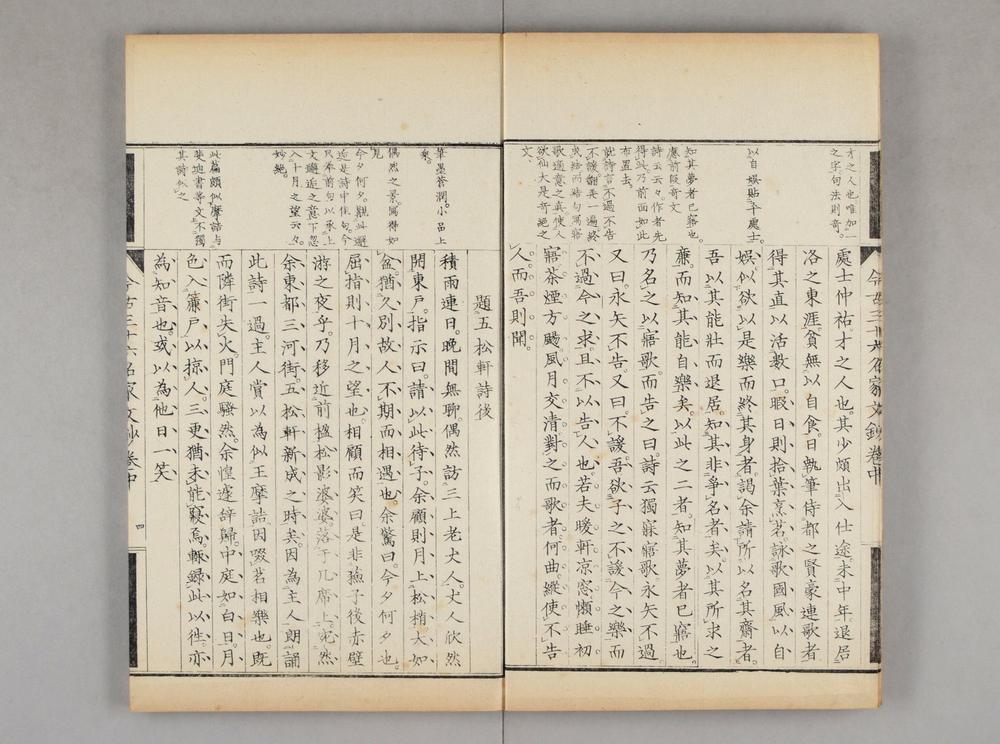 才之人也唯加一
之字句法則奇。
以自娯貼下處士。
知其夢者已寤也
應前段奇文
詩云云々。作者先
得此乃前面如此
布置去。
就詩言不過不告
不諼翻弄一遍終
歌適意之真使人
欲仙大是奇絶之
文。
處士仲祐。才之人也。其少頗出入仕途。末中年退居
洛之東涯。貧無以自食。日執筆侍都之賢豪連歌者
得其直以活數口。暇日則拾葉烹茗。詠歌國風以自
娯。似欲以是樂而終其身者。謁余請所以名其齋者。
吾以其能壯而退居。知其非爭名者矣。以其所求之
廉。而知其能自樂矣。以此之二者。知其夢者已寤也。
乃名之以寤歌。而告之曰。詩云獨寐寤歌。永矢不過
又曰。永矢不告。又曰。不諼。吾欲子之不諼今之樂而
不過今之求。且不以告人也。若夫暖軒凉窓。懶睡初
寤。茶煙方颺。風月交清。對之而歌者何曲。縱使不告
人。而吾則聞。
今古三十六名家文鈔卷中
筆墨蒼潤。小品上
乘。
偶然之景寫得如
見
今夕何夕。觀此邂
近是詩中佳句。今
文邂逅之意下忽
入十月之望云々。
妙絶。
此篇頗似摩詰与
裴迪書等文不獨
其詩似之
題五松軒詩後
積雨連日。晩間無聊。偶然訪三上老丈人。丈人欣然
開東戸。指示曰。請以此待子。余顧則月上松梢。大如
盆。猶久別故人。不期而相遇也。余驚曰。今夕何夕也。
屈指則十月之望也。相顧而笑曰。是非孫子後赤壁
游之夜乎。乃移近前楹。松影婆婆。落于几席上。宛然
余東都三河街。五松軒新成之時矣。因為主人朗誦
此詩一過。主人賞以為似王摩詰。因啜茗相樂也。既
而隣街失火。門庭騷然。余惶遽辞歸。中庭如白日。月
色入簾戸。以掠人。三更猶未能寢焉。輒録此以徃。亦
為知音也。或以為他日一笑
今古三十六名家文鈔卷中
四